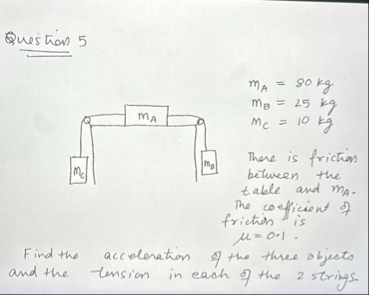 Question 5
mA = 80 kg
mB = 25 kg
mC = 10 kg
mA
mC
mB
There is friction
between the
table and mA.
The coefficient of
friction is
μ = 0.1.
Find the acceleration of the three objects
and the tension in each of the 2 strings.